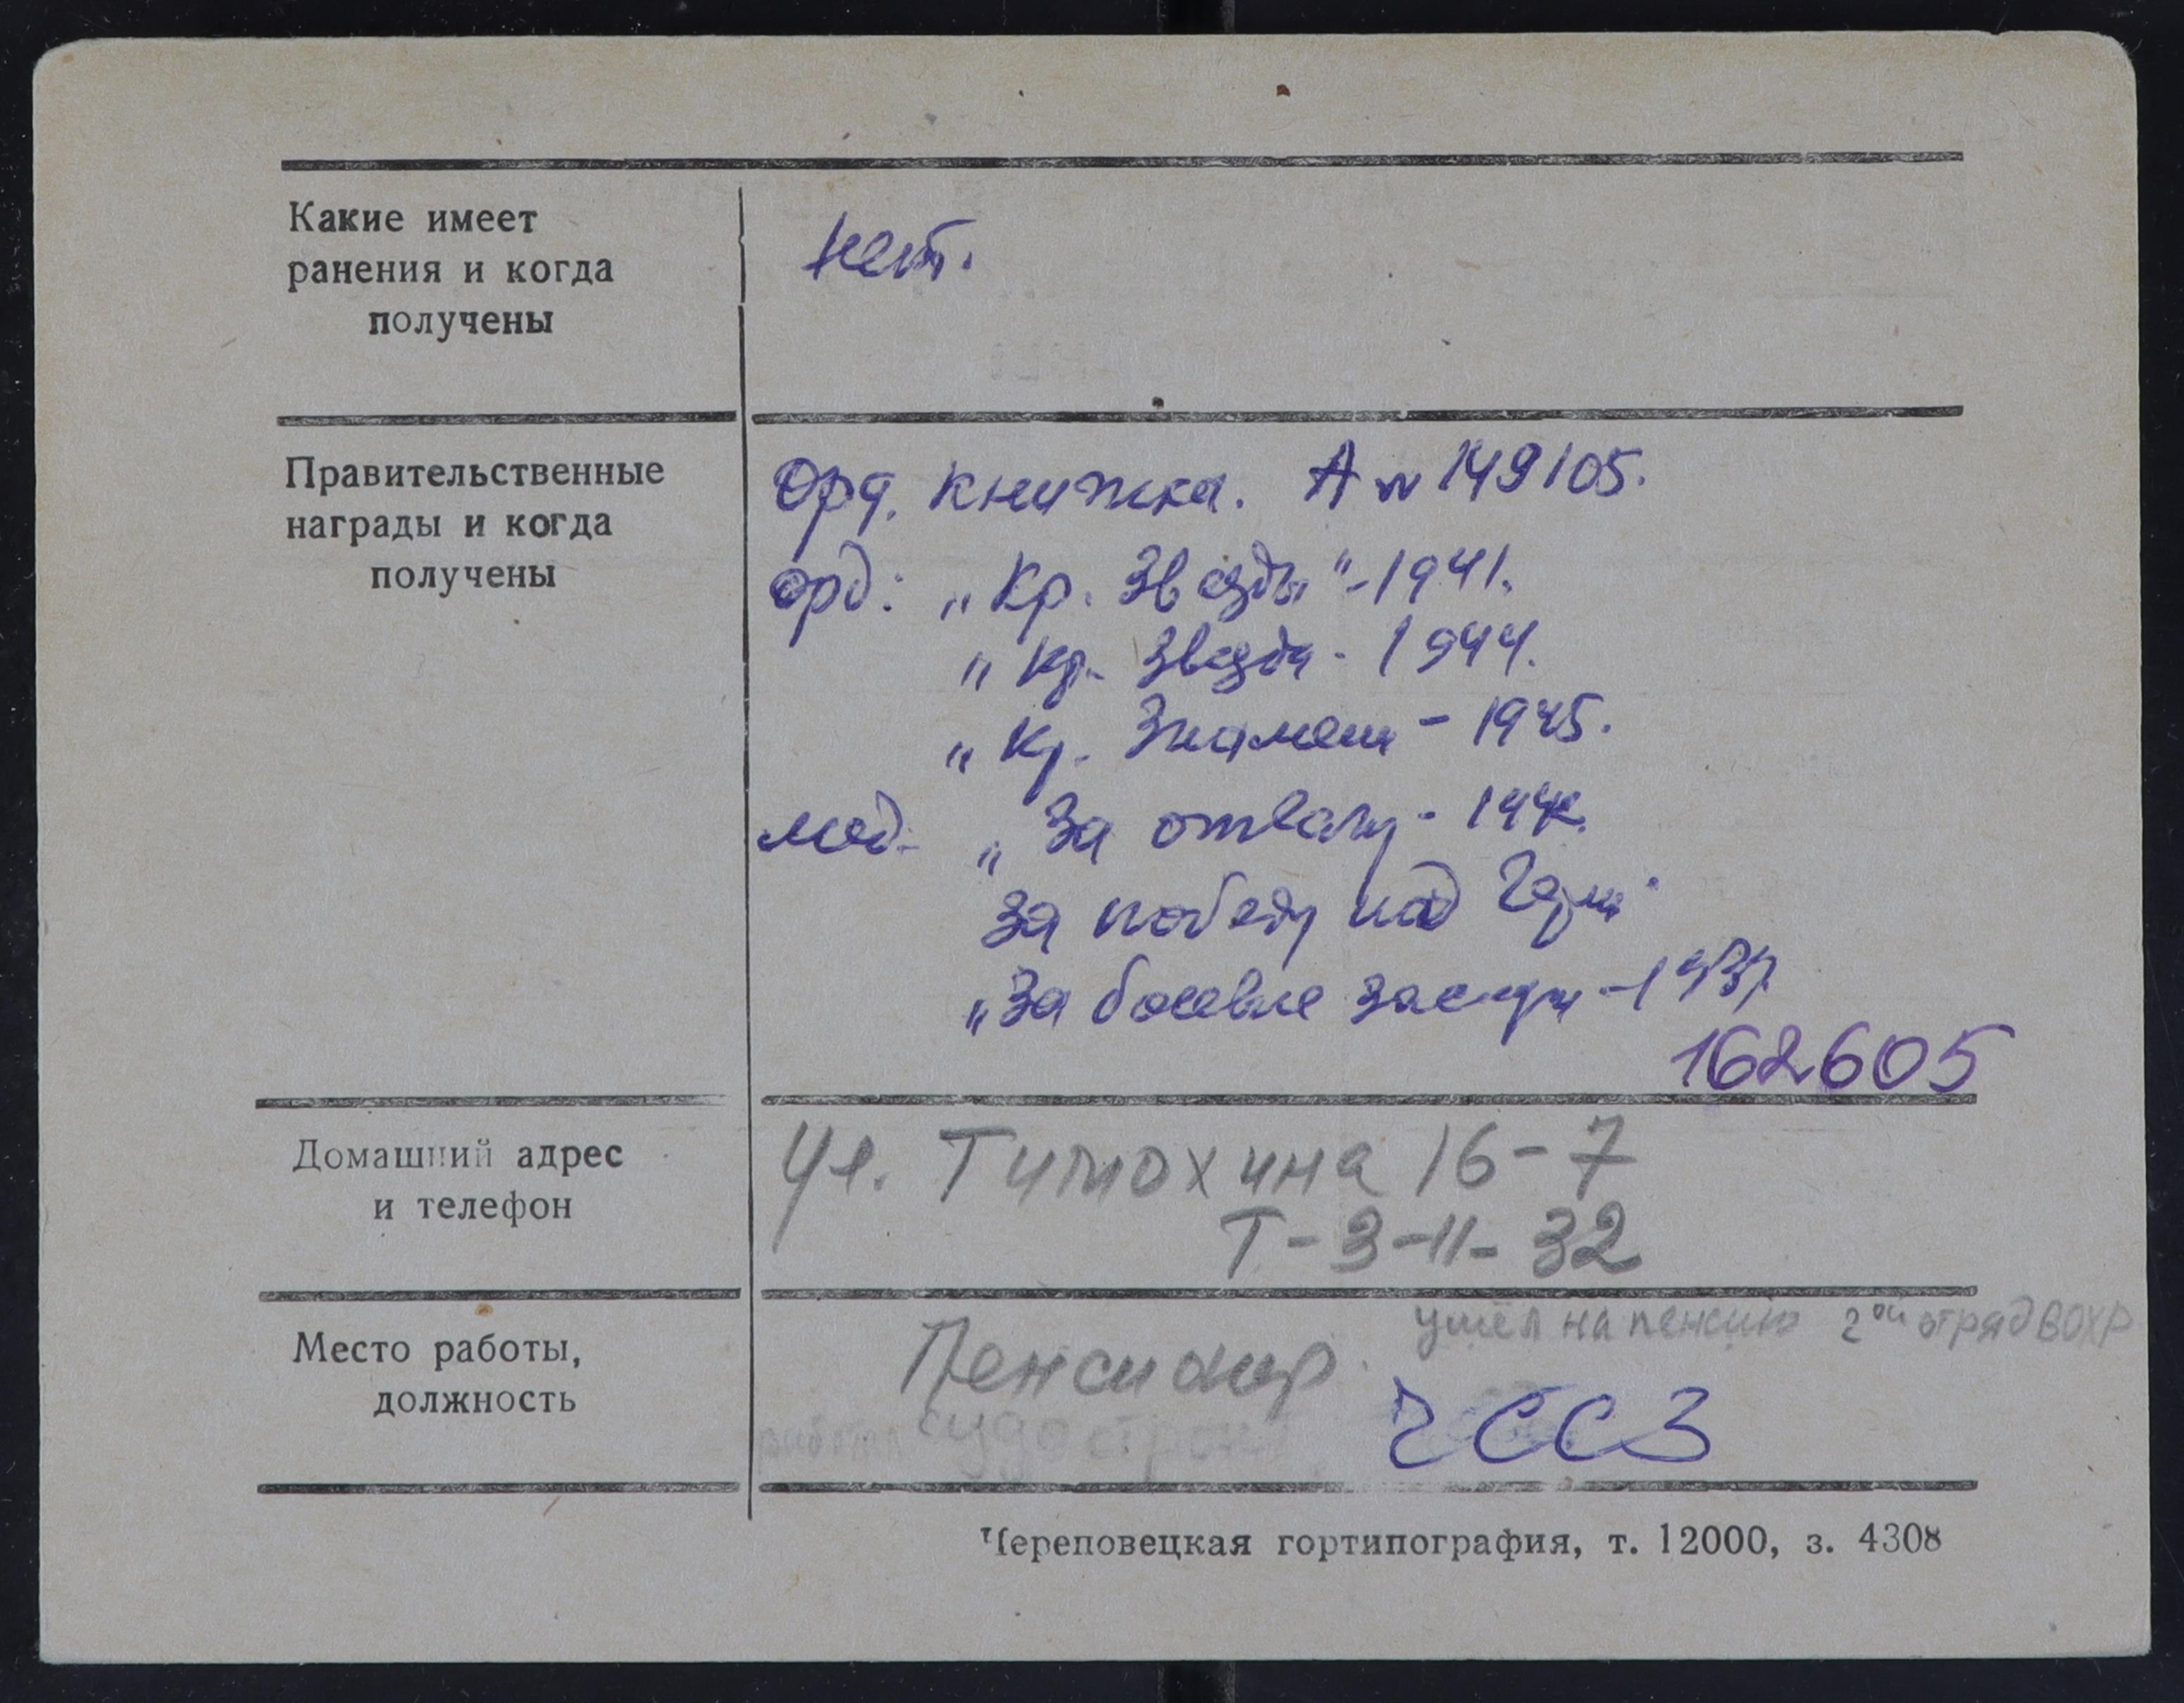 Какие имеет
ранения и когда
получены
нет.
Правительственные
награды и когда
получены
Орд. книжка. А № 149105.
орд: „Кр. Звезды" - 1941.
„Кр. Звезда - 1944.
„Кр. Знамени - 1945.
мед. „За отвагу -
За победу над Герм.
„За боевые заслуги -
162605
Домашний адрес
и телефон
Ул. Тимохина 16-7
Т-3-11-32
Место работы,
должность
ушёл на пенсию 2ой отряд ВОХР
Пенсионер.
работал судострои
ЧССЗ
Череповецкая гортипография, т. 12000, з. 4308